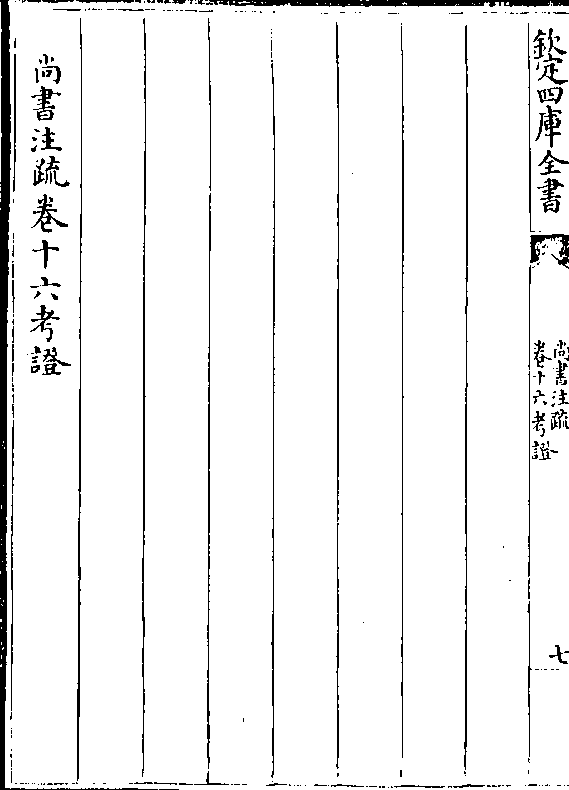 欽定四庫全書
尚書注疏
卷十六考證
七
尚書注疏卷十六考證